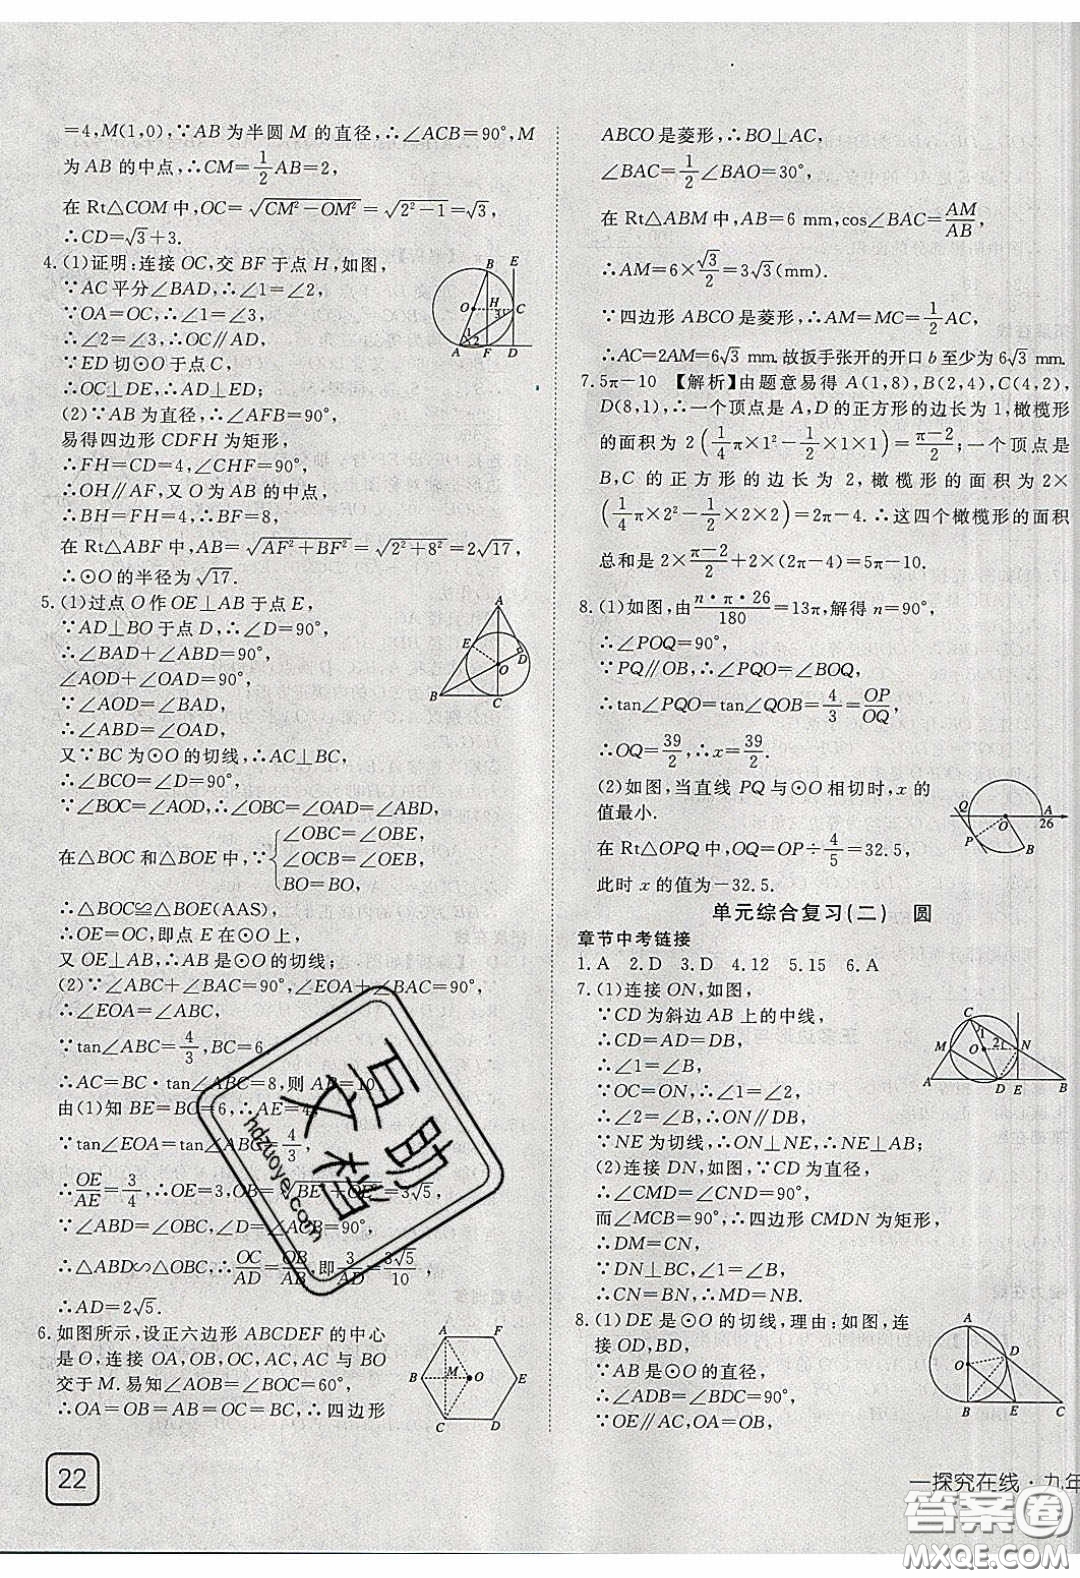 =4,M(1,0),∵AB 为半圆 M 的直径,∴∠ACB=90°,M
为 AB 的中点,∴CM=1/2AB=2,
在 Rt△COM 中,OC=√(CM²-OM²)=√(2²-1)=√3,
∴CD=√3+3.
4.(1)证明:连接 OC,交 BF 于点 H,如图,
∵AC 平分∠BAD,∴∠1=∠2,
∵OA=OC,∴∠1=∠3,
∴∠2=∠3,∴OC∥AD,
∵ED 切⊙O 于点 C,
∴OC⊥DE,∴AD⊥ED;
(2)∵AB 为直径,∴∠AFB=90°,
易得四边形 CDFH 为矩形,
∴FH=CD=4,∠CHF=90°,
∴OH∥AF,又 O 为 AB 的中点,
∴BH=FH=4,∴BF=8,
在 Rt△ABF 中,AB=√(AF²+BF²)=√(2²+8²)=2√17,
∴⊙O 的半径为√17.
5.(1)过点 O 作 OE⊥AB 于点 E,
∵AD⊥BO 于点 D,∴∠D=90°,
∴∠BAD+∠ABD=90°,
∠AOD+∠OAD=90°,
∵∠AOD=∠BAD,
∴∠ABD=∠OAD,
又∵BC 为⊙O 的切线,∴AC⊥BC,
∴∠BCO=∠D=90°,
∵∠BOC=∠AOD,∴∠OBC=∠OAD=∠ABD,
在△BOC 和△BOE 中,∵{∠OBC=∠OBE,
∠OCB=∠OEB,
BO=BO,
∴△BOC≌△BOE(AAS),
∴OE=OC,即点 E 在⊙O 上,
又 OE⊥AB,∴AB 是⊙O 的切线;
(2)∵∠ABC+∠BAC=90°,∠EOA+∠BAC=90°,
∴∠EOA=∠ABC,
∵tan∠ABC=4/3,BC=6,
∴AC=BC·tan∠ABC=8,则 AB=10,
由(1)知 BE=BC=6,∴AE=4,
∵tan∠EOA=tan∠ABC=4/3,
∴OE/AE=3/4,∴OE=3,OB=√(BE²+OE²)=3√5,
∵∠ABD=∠OBC,∠D=∠ACB=90°,
∴△ABD∽△OBC,∴OC/AD=OB/AB,即3/AD=3√5/10,
∴AD=2√5.
6.如图所示,设正六边形 ABCDEF 的中心
是 O,连接 OA,OB,OC,AC,AC 与 BO
交于 M.易知∠AOB=∠BOC=60°,
∴OA=OB=AB=OC=BC,∴四边形
22
ABCO 是菱形,∴BO⊥AC,
∠BAC=1/2∠BAO=30°,
在 Rt△ABM 中,AB=6 mm,cos∠BAC=AM/AB,
∴AM=6×√3/2=3√3(mm).
∵四边形 ABCO 是菱形,∴AM=MC=1/2AC,
∴AC=2AM=6√3 mm.故扳手张开的开口 b 至少为 6√3 mm.
7.5π-10 【解析】由题意易得 A(1,8),B(2,4),C(4,2),
D(8,1),∴一个顶点是 A,D 的正方形的边长为 1,橄榄形
的面积为 2(1/4π×1²-1/2×1×1)=(π-2)/2;一个顶点是
B,C 的正方形的边长为 2,橄榄形的面积为 2×
(1/4π×2²-1/2×2×2)=2π-4.∴这四个橄榄形的面积
总和是 2×(π-2)/2+2×(2π-4)=5π-10.
8.(1)如图,由n·π·26/180=13π,解得 n=90°,
∴∠POQ=90°,
∵PQ∥OB,∴∠PQO=∠BOQ,
∴tan∠PQO=tan∠QOB=4/3=OP/OQ,
∴OQ=39/2,∴x=39/2.
(2)如图,当直线 PQ 与⊙O 相切时,x 的
值最小.
在 Rt△OPQ 中,OQ=OP÷4/5=32.5,
此时 x 的值为-32.5.
单元综合复习(二) 圆
章节中考链接
1.A 2.D 3.D 4.12 5.15 6.A
7.(1)连接 ON,如图,
∵CD 为斜边 AB 上的中线,
∴CD=AD=DB,
∴∠1=∠B,
∵OC=ON,∴∠1=∠2,
∴∠2=∠B,∴ON∥DB,
∵NE 为切线,∴ON⊥NE,∴NE⊥AB;
(2)连接 DN,如图,∵CD 为直径,
∴∠CMD=∠CND=90°,
而∠MCB=90°,∴四边形 CMDN 为矩形,
∴DM=CN,
∵DN⊥BC,∠1=∠B,
∴CN=BN,∴MD=NB.
8.(1)DE 是⊙O 的切线,理由:如图,连
接 OD,BD,
∵AB 是⊙O 的直径,
∴∠ADB=∠BDC=90°,
∵OE∥AC,OA=OB,
一探究在线·九年
百助
文档
hdzuoye.com
答案圈
MXQE.COM